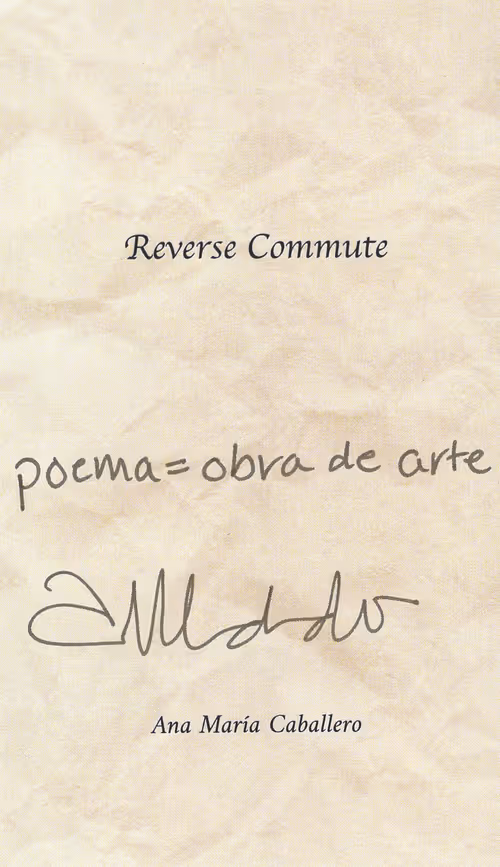 Reverse Commute
poema = obra de arte
Ana María Caballero